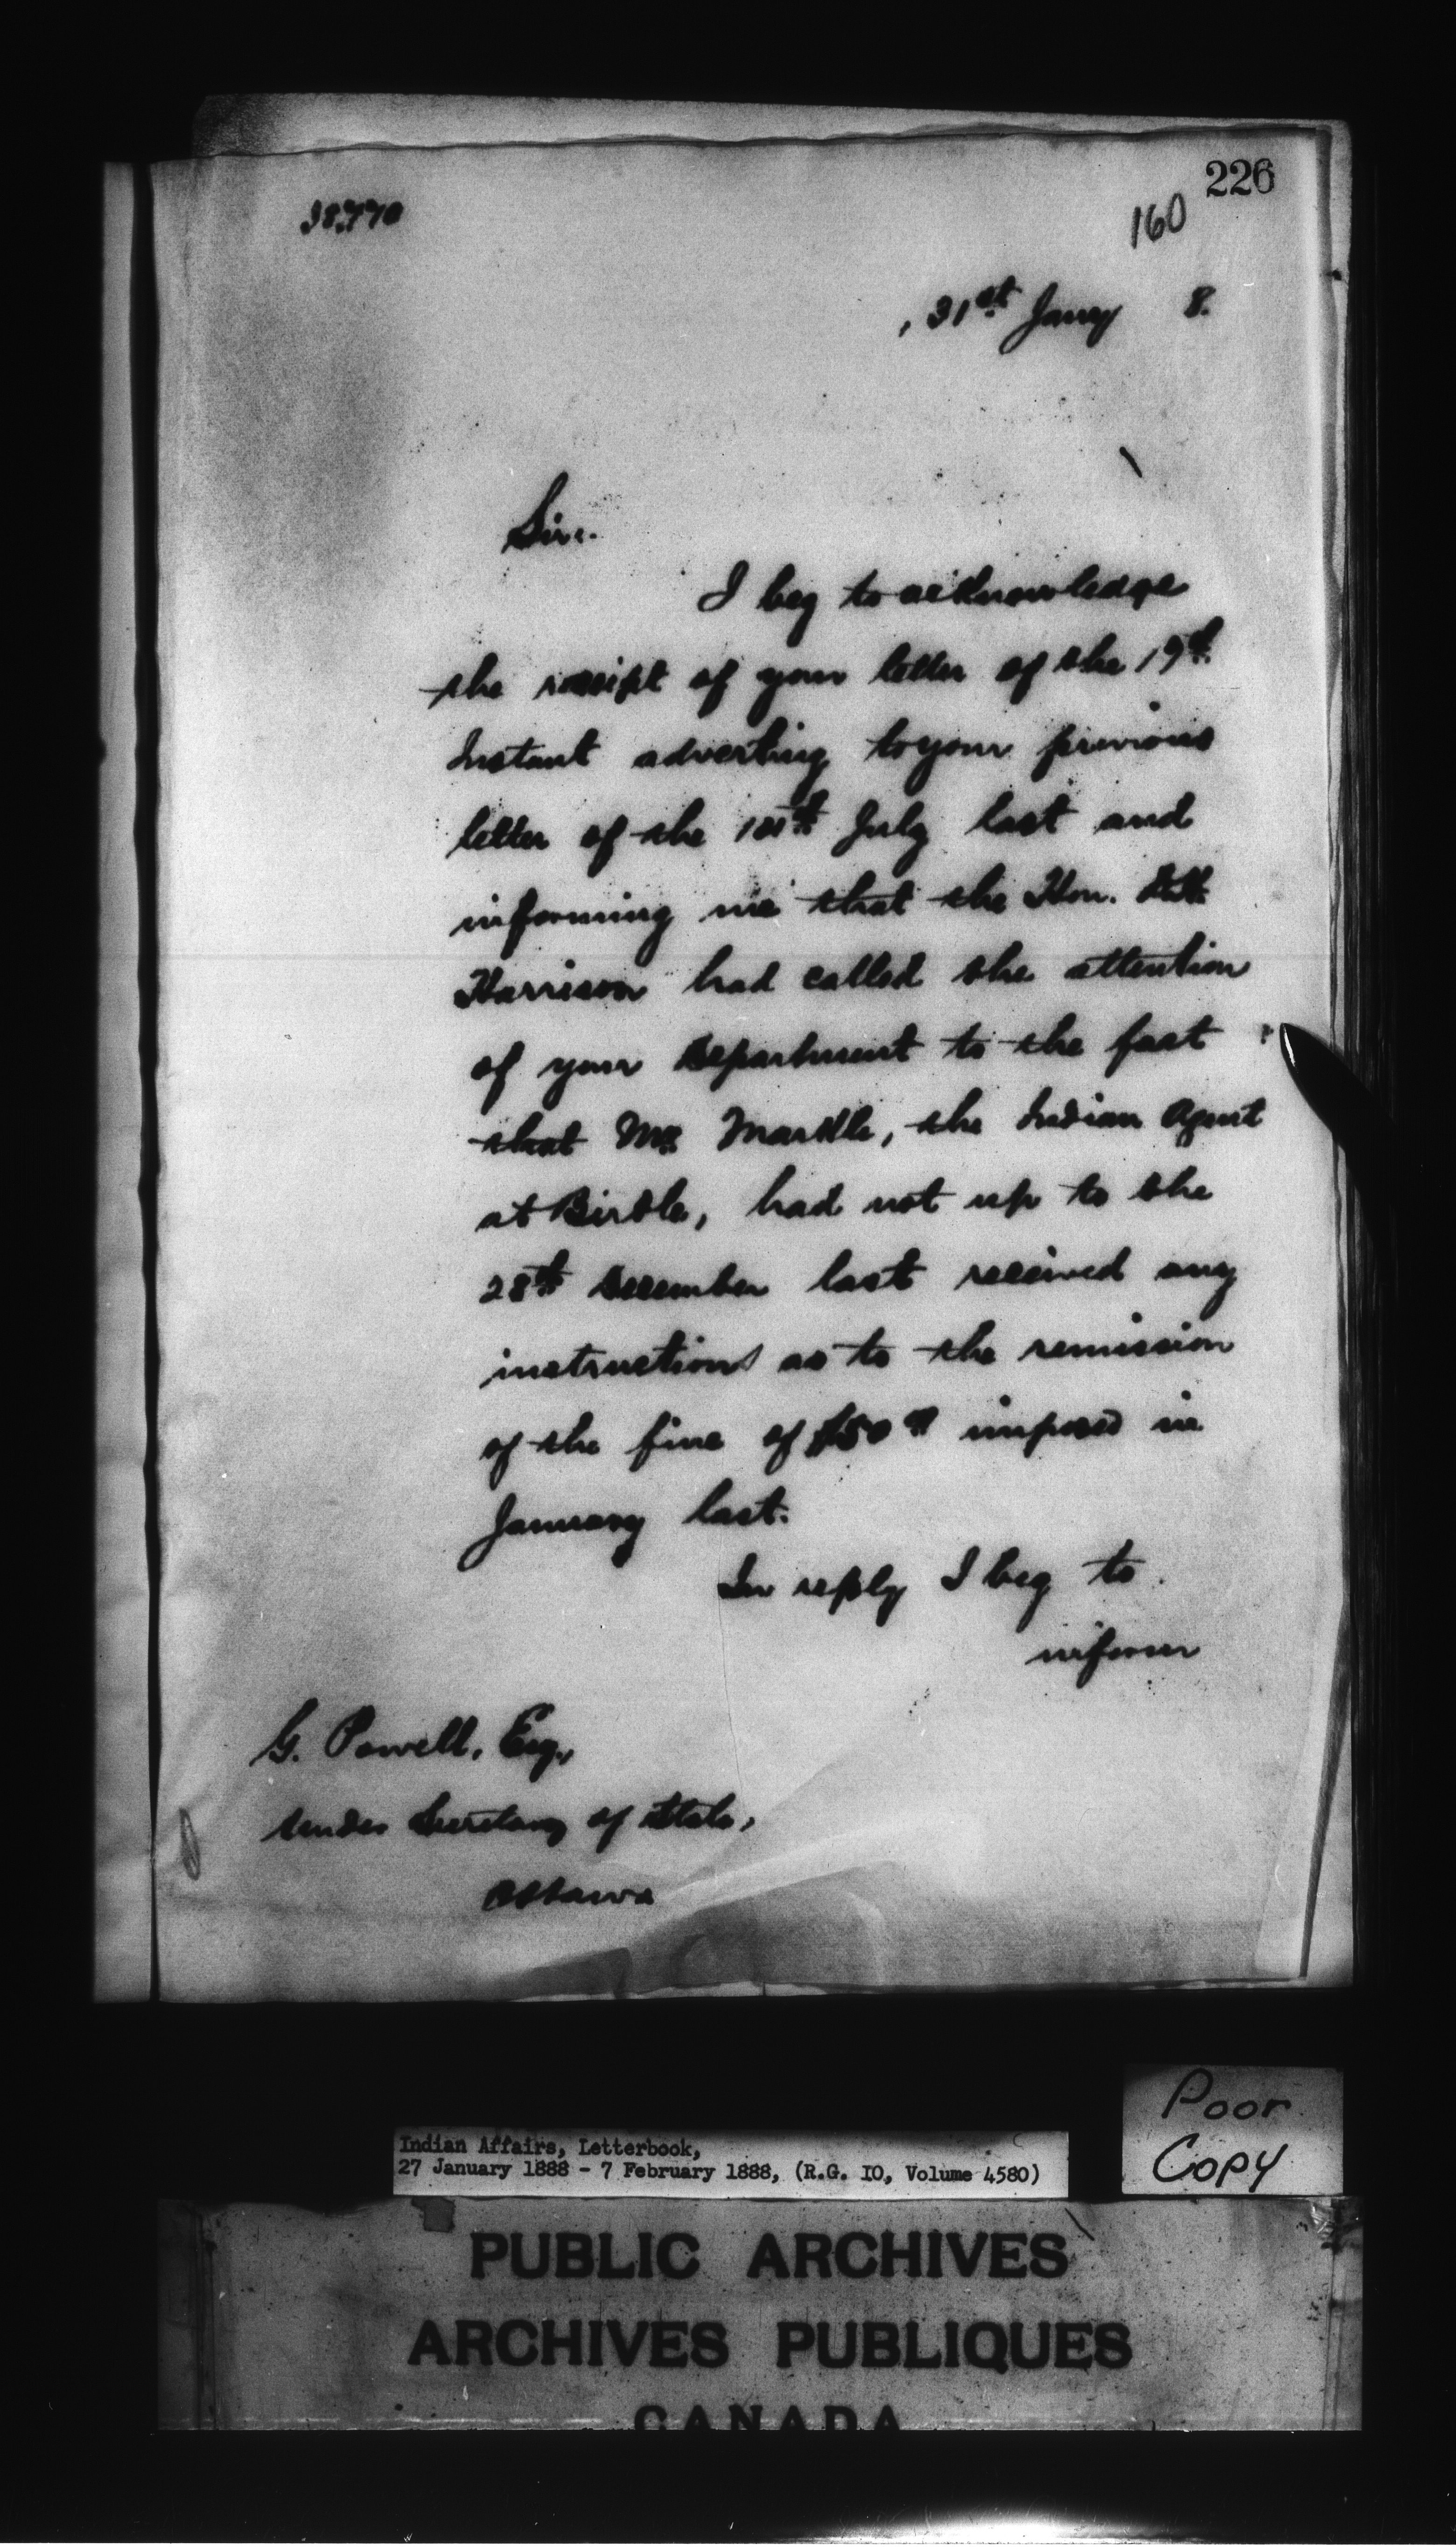 226
160
, 31st Jany 8.
Sir.
I beg to acknowledge
the receipt of your letter of the 19th
Instant adverting to your previous
letter of the July last and
informing me that the Hon.
Harrison had called the attention
of your Department to the fact
that Mr. Markle, the Indian Agent
at Birtle, had not up to the
28th December last received any
instructions as to the remission
of the fine of $50 imposed in
January last.
In reply I beg to
inform
G. Powell, Esq.,
Under Secretary of State,
Ottawa
Poor
Copy
Indian Affairs, Letterbook,
27 January 1888 - 7 February 1888, (R.G. 10, Volume 4580)
PUBLIC ARCHIVES
ARCHIVES PUBLIQUES
CANADA